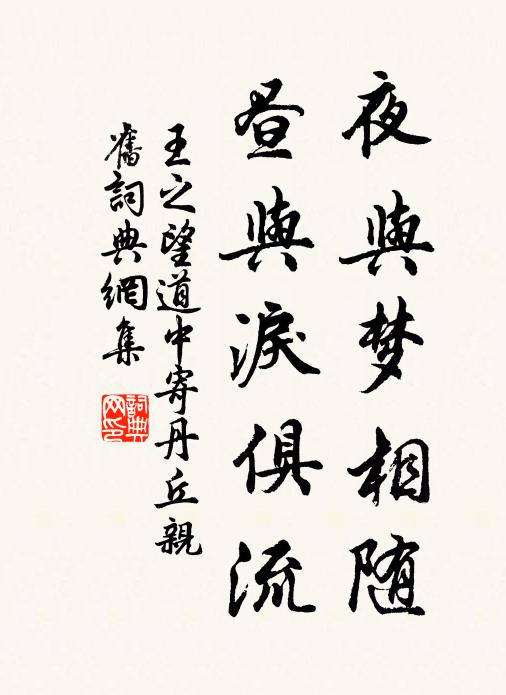 夜與梦相随
昼與淚俱流
王之望道中寄丹丘親
舊詞典網集
詞典
网印